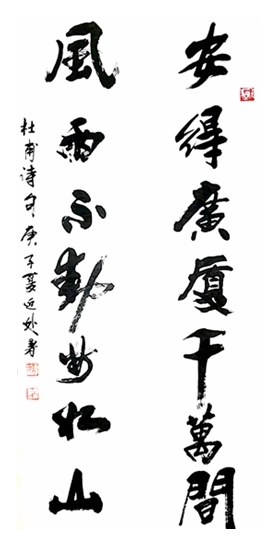 安得廣廈千萬間
風雨不動安如山
杜甫诗句庚子夏近妙書